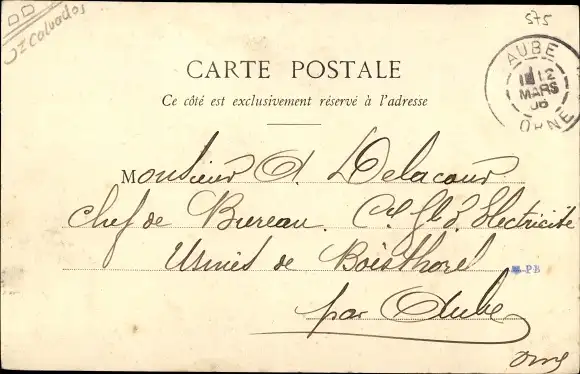 575
32 Calvados
AUBE
12
MARS
06
ORNE
CARTE POSTALE
Ce côté est exclusivement réservé à l'adresse
Monsieur A. Delacour
Chef de Bureau. Cie Gle d'Electricité
Usines de Boisthorel
PB
par Aube
Orne